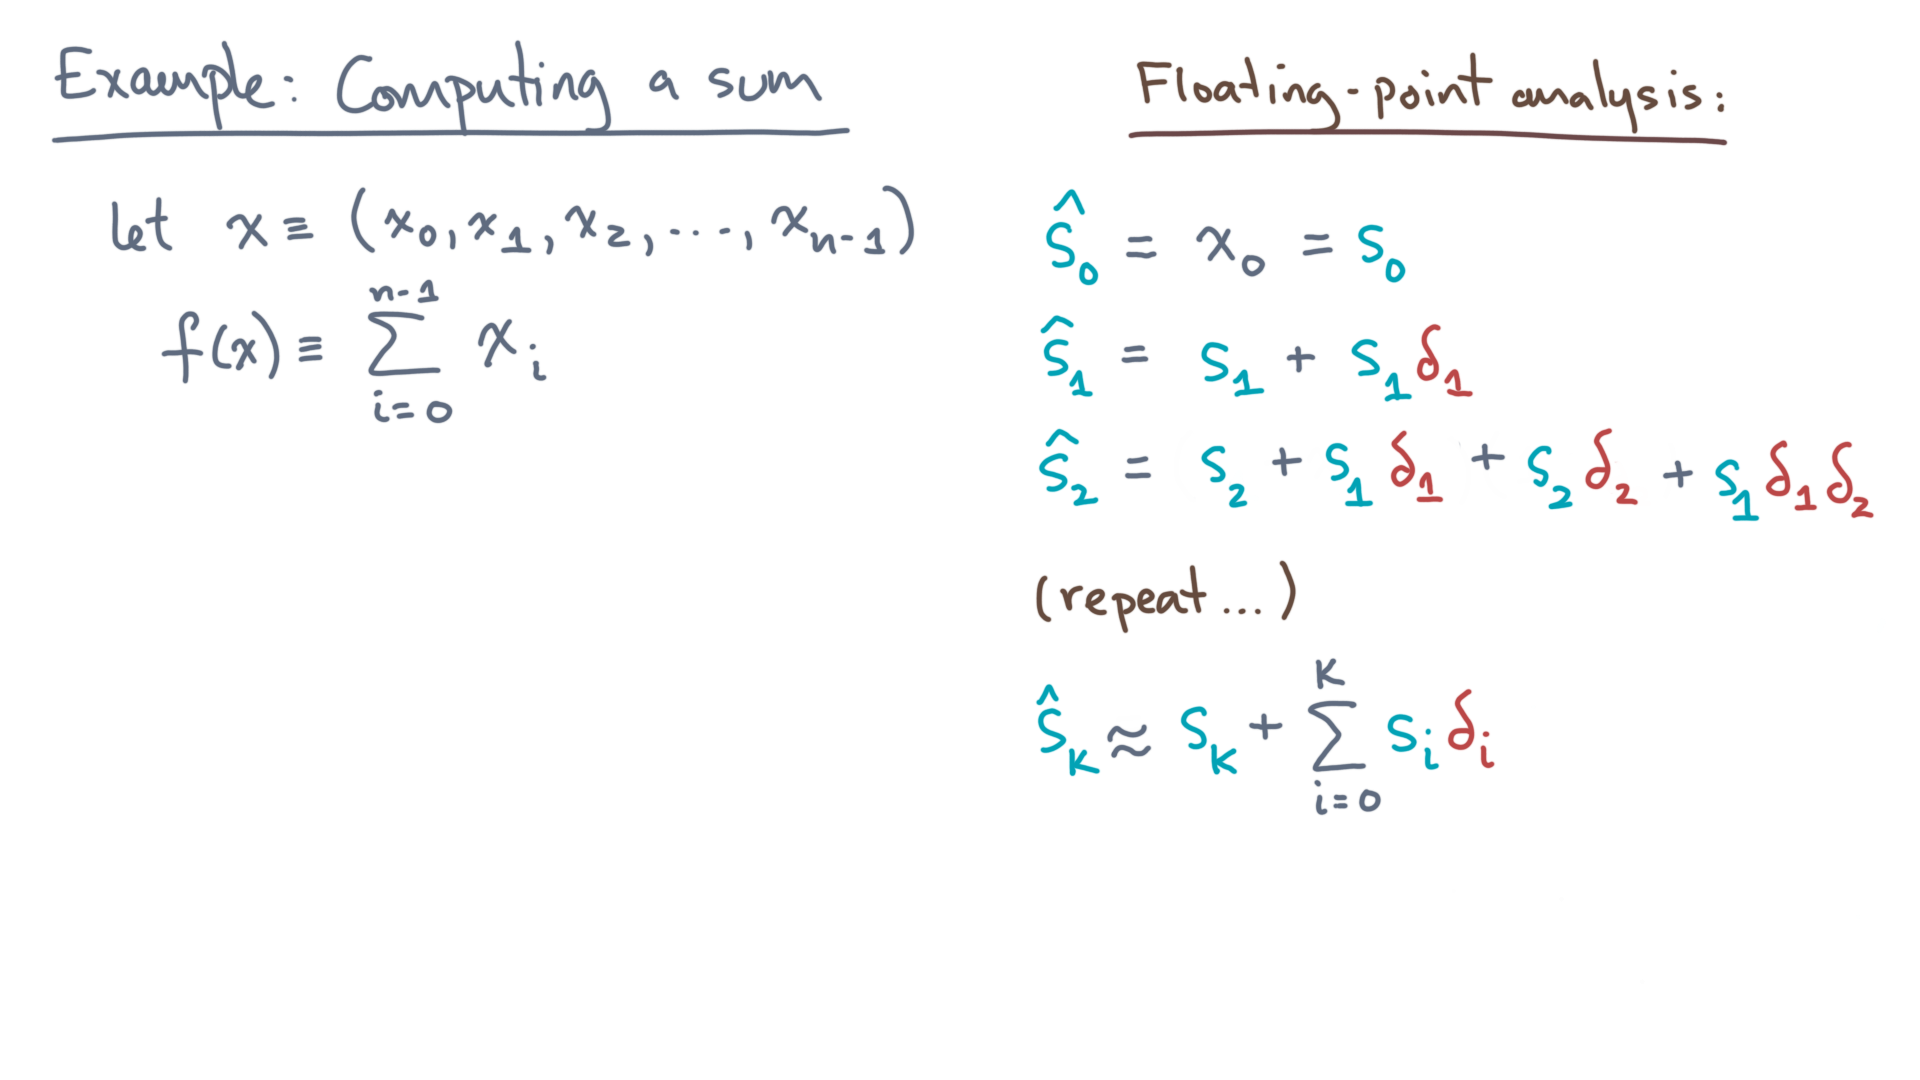 Example: Computing a sum
let x ≡ (x₀, x₁, x₂, ..., xₙ₋₁)
f(x) ≡ ∑ᵢ₌₀ⁿ⁻¹ xᵢ
Floating-point analysis:
ŝ₀ = x₀ = s₀
ŝ₁ = s₁ + s₁δ₁
ŝ₂ = s₂ + s₁δ₁ + s₂δ₂ + s₁δ₁δ₂
(repeat...)
ŝₖ ≈ sₖ + ∑ᵢ₌₀ᵏ sᵢδᵢ